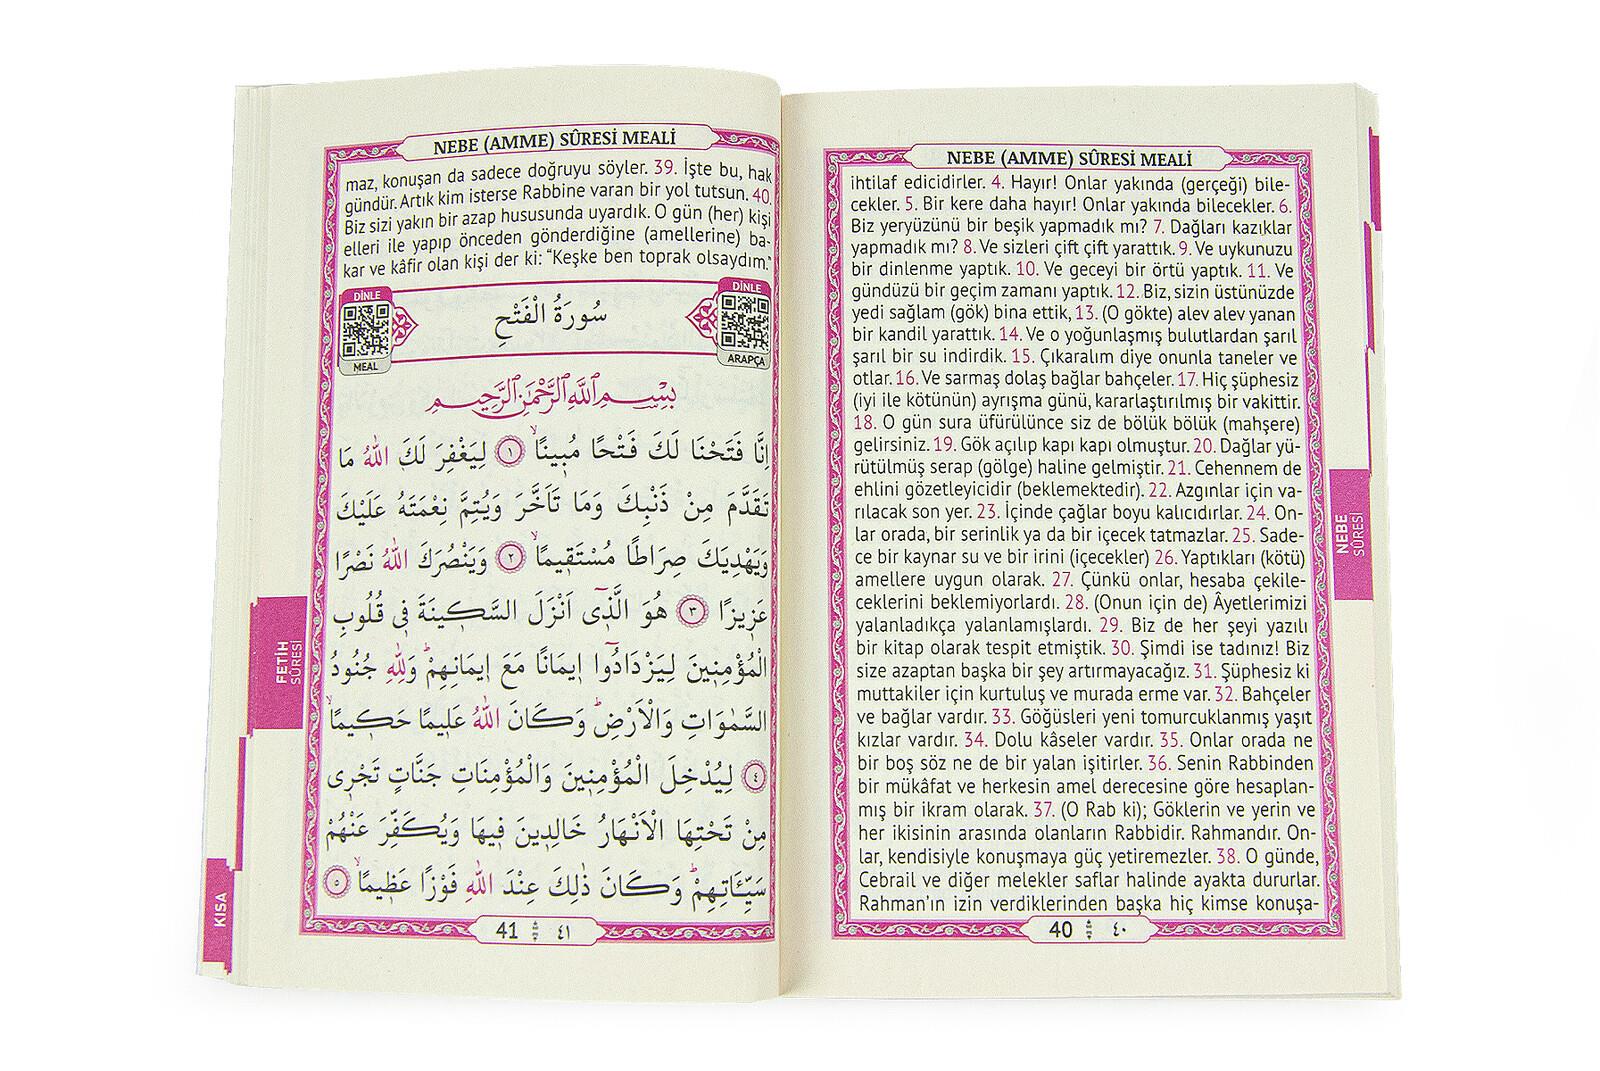 NEBE (AMME) SÛRESİ MEALİ
ihtilaf edicidirler. 4. Hayır! Onlar yakında (gerçeği) bile-
cekler. 5. Bir kere daha hayır! Onlar yakında bilecekler. 6.
Biz yeryüzünü bir beşik yapmadık mı? 7. Dağları kazıklar
yapmadık mı? 8. Ve sizleri çift çift yarattık. 9. Ve uykunuzu
bir dinlenme yaptık. 10. Ve geceyi bir örtü yaptık. 11. Ve
gündüzü bir geçim zamanı yaptık. 12. Biz, sizin üstünüzde
yedi sağlam (gök) bina ettik, 13. (O gökte) alev alev yanan
bir kandil yarattık. 14. Ve o yoğunlaşmış bulutlardan şarıl
şarıl bir su indirdik. 15. Çıkaralım diye onunla taneler ve
otlar. 16. Ve sarmaş dolaş bağlar bahçeler. 17. Hiç şüphesiz
(iyi ile kötünün) ayrışma günü, kararlaştırılmış bir vakittir.
18. O gün sura üfürülünce siz de bölük bölük (mahşere)
gelirsiniz. 19. Gök açılıp kapı kapı olmuştur. 20. Dağlar yü-
rütülmüş serap (gölge) haline gelmiştir. 21. Cehennem de
ehlini gözetleyicidir (beklemektedir). 22. Azgınlar için va-
rılacak son yer. 23. İçinde çağlar boyu kalıcıdırlar. 24. On-
lar orada, bir serinlik ya da bir içecek tatmazlar. 25. Sade-
ce bir kaynar su ve bir irini (içecekler) 26. Yaptıkları (kötü)
amellere uygun olarak. 27. Çünkü onlar, hesaba çekile-
ceklerini beklemiyorlardı. 28. (Onun için de) Âyetlerimizi
yalanladıkça yalanlamışlardı. 29. Biz de her şeyi yazılı
bir kitap olarak tespit etmiştik. 30. Şimdi ise tadınız! Biz
size azaptan başka bir şey artırmayacağız. 31. Şüphesiz ki
muttakiler için kurtuluş ve murada erme var. 32. Bahçeler
ve bağlar vardır. 33. Göğüsleri yeni tomurcuklanmış yaşıt
kızlar vardır. 34. Dolu kâseler vardır. 35. Onlar orada ne
bir boş söz ne de bir yalan işitirler. 36. Senin Rabbinden
bir mükâfat ve herkesin amel derecesine göre hesaplan-
mış bir ikram olarak. 37. (O Rab ki); Göklerin ve yerin ve
her ikisinin arasında olanların Rabbidir. Rahmandır. On-
lar, kendisiyle konuşmaya güç yetiremezler. 38. O günde,
Cebrail ve diğer melekler saflar halinde ayakta dururlar.
Rahman'ın izin verdiklerinden başka hiç kimse konuşa-
40 ٤٠
NEBE
SÛRESİ
NEBE (AMME) SÛRESİ MEALİ
maz, konuşan da sadece doğruyu söyler. 39. İşte bu, hak
gündür. Artık kim isterse Rabbine varan bir yol tutsun. 40.
Biz sizi yakın bir azap hususunda uyardık. O gün (her) kişi
elleri ile yapıp önceden gönderdiğine (amellerine) ba-
kar ve kâfir olan kişi der ki: “Keşke ben toprak olsaydım.”
DİNLE
ARAPÇA
سُورَةُ الْفَتْحِ
DİNLE
MEAL
بِسْمِ اللّٰهِ الرَّحْمٰنِ الرَّحِيمِ
اِنَّا فَتَحْنَا لَكَ فَتْحًا مُبِينًاۙ ١ لِيَغْفِرَ لَكَ اللّٰهُ مَا
تَقَدَّمَ مِنْ ذَنْبِكَ وَمَا تَاَخَّرَ وَيُتِمَّ نِعْمَتَهُ عَلَيْكَ
وَيَهْدِيَكَ صِرَاطًا مُسْتَقِيمًاۙ ٢ وَيَنْصُرَكَ اللّٰهُ نَصْرًا
عَزِيزًا ٣ هُوَ الَّذِٓى اَنْزَلَ السَّكِينَةَ فِى قُلُوبِ
الْمُؤْمِنِينَ لِيَزْدَادُٓوا اِيمَانًا مَعَ اِيمَانِهِمْؕ وَلِلّٰهِ جُنُودُ
السَّمٰوَاتِ وَالْاَرْضِؕ وَكَانَ اللّٰهُ عَلِيمًا حَكِيمًاۙ
٤ لِيُدْخِلَ الْمُؤْمِنِينَ وَالْمُؤْمِنَاتِ جَنَّاتٍ تَجْرِى
مِنْ تَحْتِهَا الْاَنْهَارُ خَالِدِينَ فِيهَا وَيُكَفِّرَ عَنْهُمْ
سَيِّـَٔاتِهِمْؕ وَكَانَ ذٰلِكَ عِنْدَ اللّٰهِ فَوْزًا عَظِيمًاۙ ٥
41 ٤١
FETİH
SÛRESİ
KISA